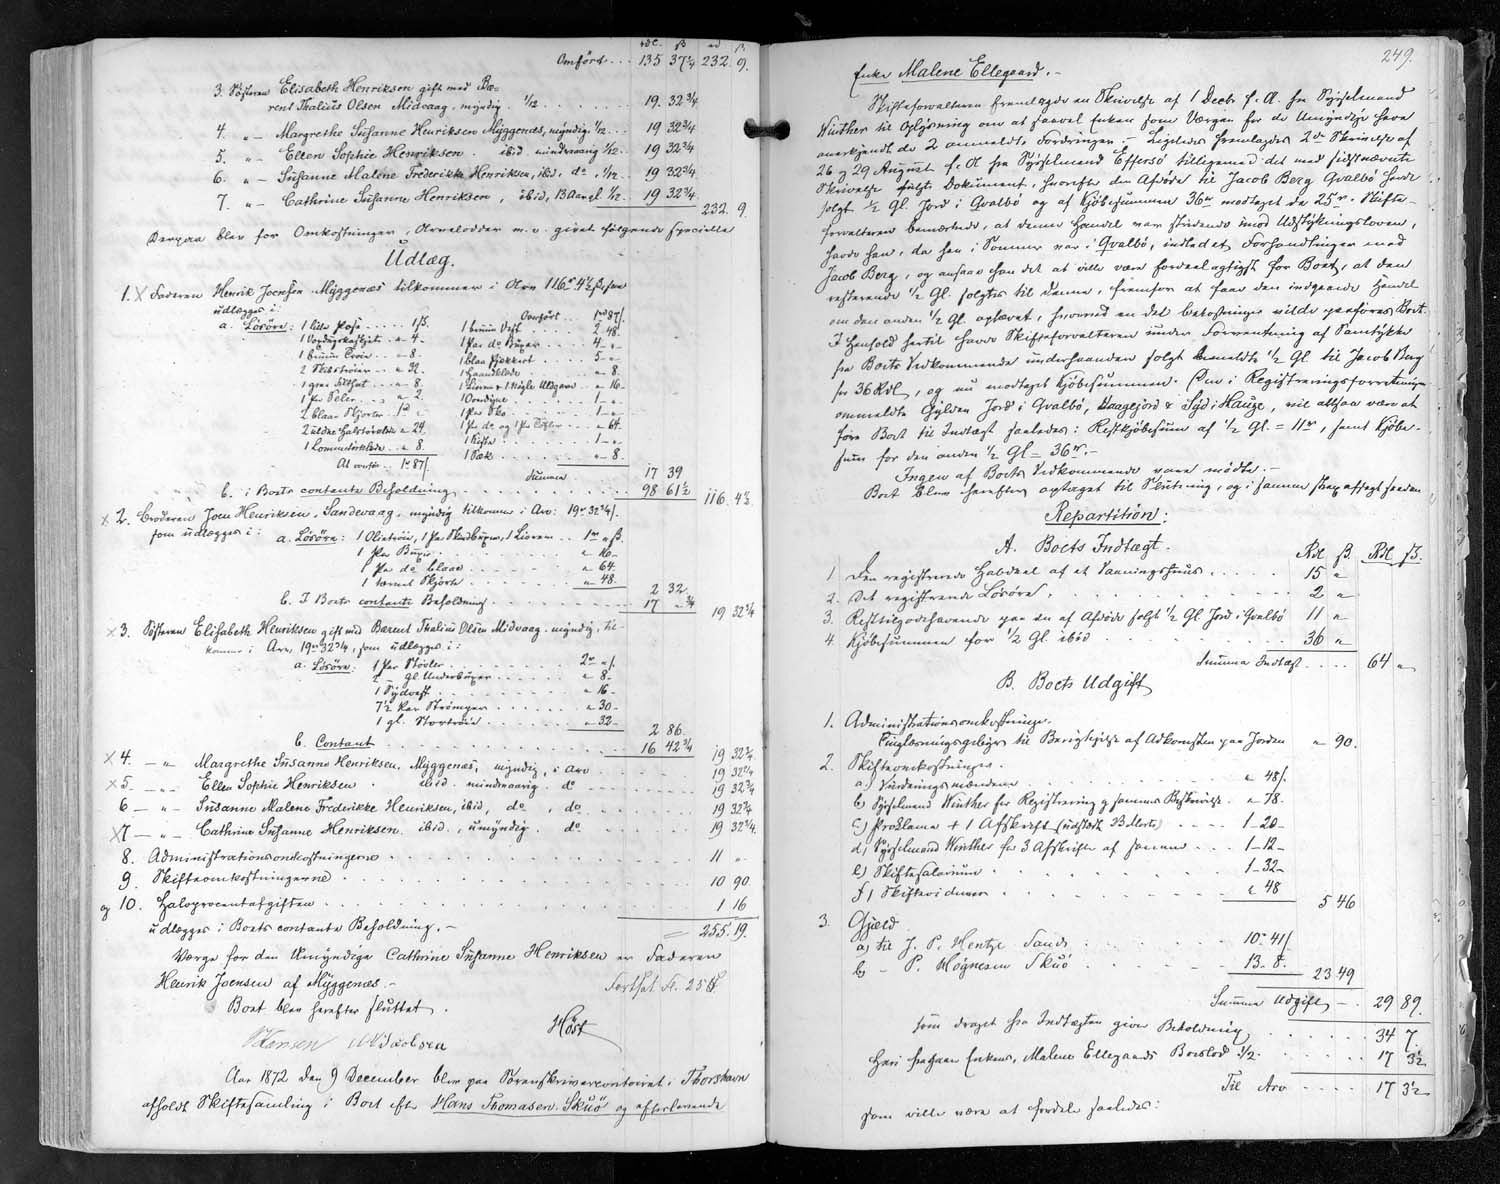 rdl. ß rd ß
Omført . . . 135 37 2/4 232. 9.
3. Søsteren Elisabeth Henriksen gift med Ba-
rent Thalius Olsen Midvaag, myndig. 1/12 . . . . . 19. 32 3/4
4. „ - Margrethe Susanne Henriksen Myggenæs, myndig 1/12 . . 19 32 3/4
5. „ - Ellen Sophie Henriksen . ibid mindreaarig 1/12 . . 19 32 3/4
6. „ - Susanne Malene Frederikke Henriksen, ibid, do , 1/12 . . 19. 32 3/4
7. „ - Cathrine Susanne Henriksen, ibid, 13 Aar gl. 1/12 . . 19. 32 3/4
232. 9.
Derpaa blev for Omkostninger, Arvelodder m. v. givet følgende specielle
Udlæg.
1. X Faderen Henrik Joensen Myggenæs tilkommer i Arv 116rd 4½ß som
udlægges i:
a. Løsøre: 1 lille Pose . . . . . 1ß.
Omført . . . 1rd 87ß
1 brun Vest . . . 2 48
1 Par do Buxer . . . 4 - „ -
1 brun Trøie . . „ 8 - 1 blaa Pjekkert . . . 5 - „ -
2 Skindtrøier . . „ 32. 1 Haandklæde . . . „ 8.
1 graa Filthat . . „ 8. „ 16 -
1 Par Seler . . „ 2. 1 - „ -
2 blaae Skjorter . 1rd „ 1 Par Sko . . . 1 - „ -
2 uldne Halstørklæder „ 24 1 Par do og 1 Par Tøfler . . „ 64.
1 Lommetørklæde . . „ 8 1 Kiste . . . 1 - „ -
1 Sæk . . . „ 8 -
At omføre . . 1rd 87ß Summa 17 39
b. i Boets contante Beholdning . . . . . 98 61½ 116. 4½.
X 2. Broderen Joen Henriksen, Sandevaag, myndig tilkommer i Arv: 19rd 32¾ß.
som udlægges i: a. Løsøre: 1 Olietrøie, 1 Par Skindbuxer, . . 1rd „ ß.
1 Par Buxer . . . „ 16 -
1 Par do blaae . . . „ 64.
1 ternet Skjorte . . . „ 48.
2 32.
b. I Boets contante Beholdning . . . 17 - ¾ 19 32 3/4
X 3. Søsteren Elisabeth Henriksen gift med Barent Thalius Olsen Midvaag, myndig, til-
kommer i Arv, 19rd 32¾, som udlægges i:
a. Løsøre: 1 Par Støvler . . . 2rd „ ß.
2 - gl Underbuxer . . . „ 8 -
1 Sydvest . . . „ 16 -
7½ Par Strømper . . . „ 30 -
1 gl. Stortrøie . . . „ 32 -
2 86.
b. Contant . . . 16 42 3/4 19 32 3/4
X 4. - „ - Margrethe Susanne Henriksen, Myggenæs, myndig, i Arv . . . 19 32 3/4
X 5 - „ - Ellen Sophie Henriksen . ibid. mindreaarig. do . . . 19 32 3/4
6 - „ - Susanne Malene Frederikke Henriksen, ibid, do, do . . . 19 32 3/4
X 7 - „ - Cathrine Susanne Henriksen, ibid., umyndig. do . . . 19 32 3/4.
8. Administrationsomkostningerne . . . 11 „
9. Skifteomkostningerne . . . 10 90.
og 10. Halvprocentafgiften . . . 1 16
udlægges i Boets contante Beholdning. - 255. 19.
Værge for den Umyndige Cathrine Susanne Henriksen er Faderen
Henrik Joensen af Myggenæs. - Fortsat Fo. 256.
Boet blev herefter sluttet.
Høst
Hansen Jacobsen
Aar 1872 den 9 December blev paa Sorenskrivercontoiret i Thorshavn
afholdt Skiftesamling i Boet efter Hans Thomasen Skuø og efterlevende
249.
Enke Malene Ellegaard. -
Skifteforvalteren fremlagde en Skrivelse af 1 Decbr f. A. fra Sysselmand
Winther til Oplysning om at saavel Enken som Værgen for de Umyndige have
anerkjendt de 2 anmeldte Fordringer. - Ligeledes fremlagdes 2de Skrivelser af
26 og 29 August f. A. fra Sysselmand Effersø tilligemed det med sidstnævnte
Skrivelse fulgte Dokument, hvorefter den Afdøde til Jacob Berg Qvalbø havde
solgt ½ Gl. Jord i Qvalbø og af Kjøbesummen 36rd modtaget de 25rd. Skifte-
forvalteren bemærkede, at denne Handel var stridende mod Udstykningsloven,
havde han, da han i Sommer var i Qvalbø, indledet Forhandlinger med
Jacob Berg, og ansaae han det at ville være fordeelagtigst for Boet, at den
resterende ½ Gl. solgtes til Denne, fremfor at faae den indgaaede Handel
om den anden ½ Gl. ophævet, hvorved en del Bekostninger vilde paaføres Boet.
I Henhold hertil havde Skifteforvalteren under Forventning af Samtykke
fra Boets Vedkommende underhaanden solgt bemeldte ½ Gl. til Jacob Berg
for 36 Rdl, og nu modtaget Kjøbesummen. Den i Registreringsforretningen
ommeldte Gylden Jord i Qvalbø, Haagejord & Syd i Hauge, vil altsaa være at
føre Boet til Indtægt saaledes: Restkjøbesum af ½ Gl. = 11rd, samt Kjøbe-
sum for den anden ½ Gl = 36rd. -
Ingen af Boets Vedkommende vare mødte. -
Boet blev herefter optaget til Slutning, og i samme strax afsagt saadan
Repartition:
A. Boets Indtægt. Rdl ß. Rdl ß.
1 Den registrerede Halvdeel af et Vaaningshuus . . . 15 „
2. Det registrerede Løsøre . . . 2 „
3. Resttilgodehavende paa den af Afdøde solgt ½ Gl. Jord i Qvalbø 11 „
4. Kjøbesummen for ½ Gl. ibid . . . 36 „
Summa Indtægt . . . . 64 „
B. Boets Udgift
1. Administrationsomkostninger.
Tinglæsningsgebyr til Berigtigelse af Adkomsten paa Jorden „ 90.
2. Skifteomkostninger.
a) Vurderingsmændene . . . „ 48ß.
b) Sysselmand Winther for Registrering og sammes Beskrivelse . „ 78.
c) Proklama + 1 Afskrift (udstedt 3 Mrts) . . . 1 - 20 -
d) Sysselmand Winther for 3 Afskrifter af samme . . . 1 - 12 -
e) Skiftesalarium . . . 1 - 32 -
f) Skiftevidner . . . „ 48
5 46
3. Gjæld
a) til J. P. Hentze Sand: . . . 10rd 41ß.
b - P. Mognesen Skuø . . . 13 - 8.
23 49
Summa Udgift - . 29 89.
som draget fra Indtægten giver Beholdning . . . 34 7.
Heri fragaaer Enkens, Malene Ellegaards Boeslod ½ . . . 17 3½
Til Arv . . . . 17 3½
som ville være at fordele saaledes: